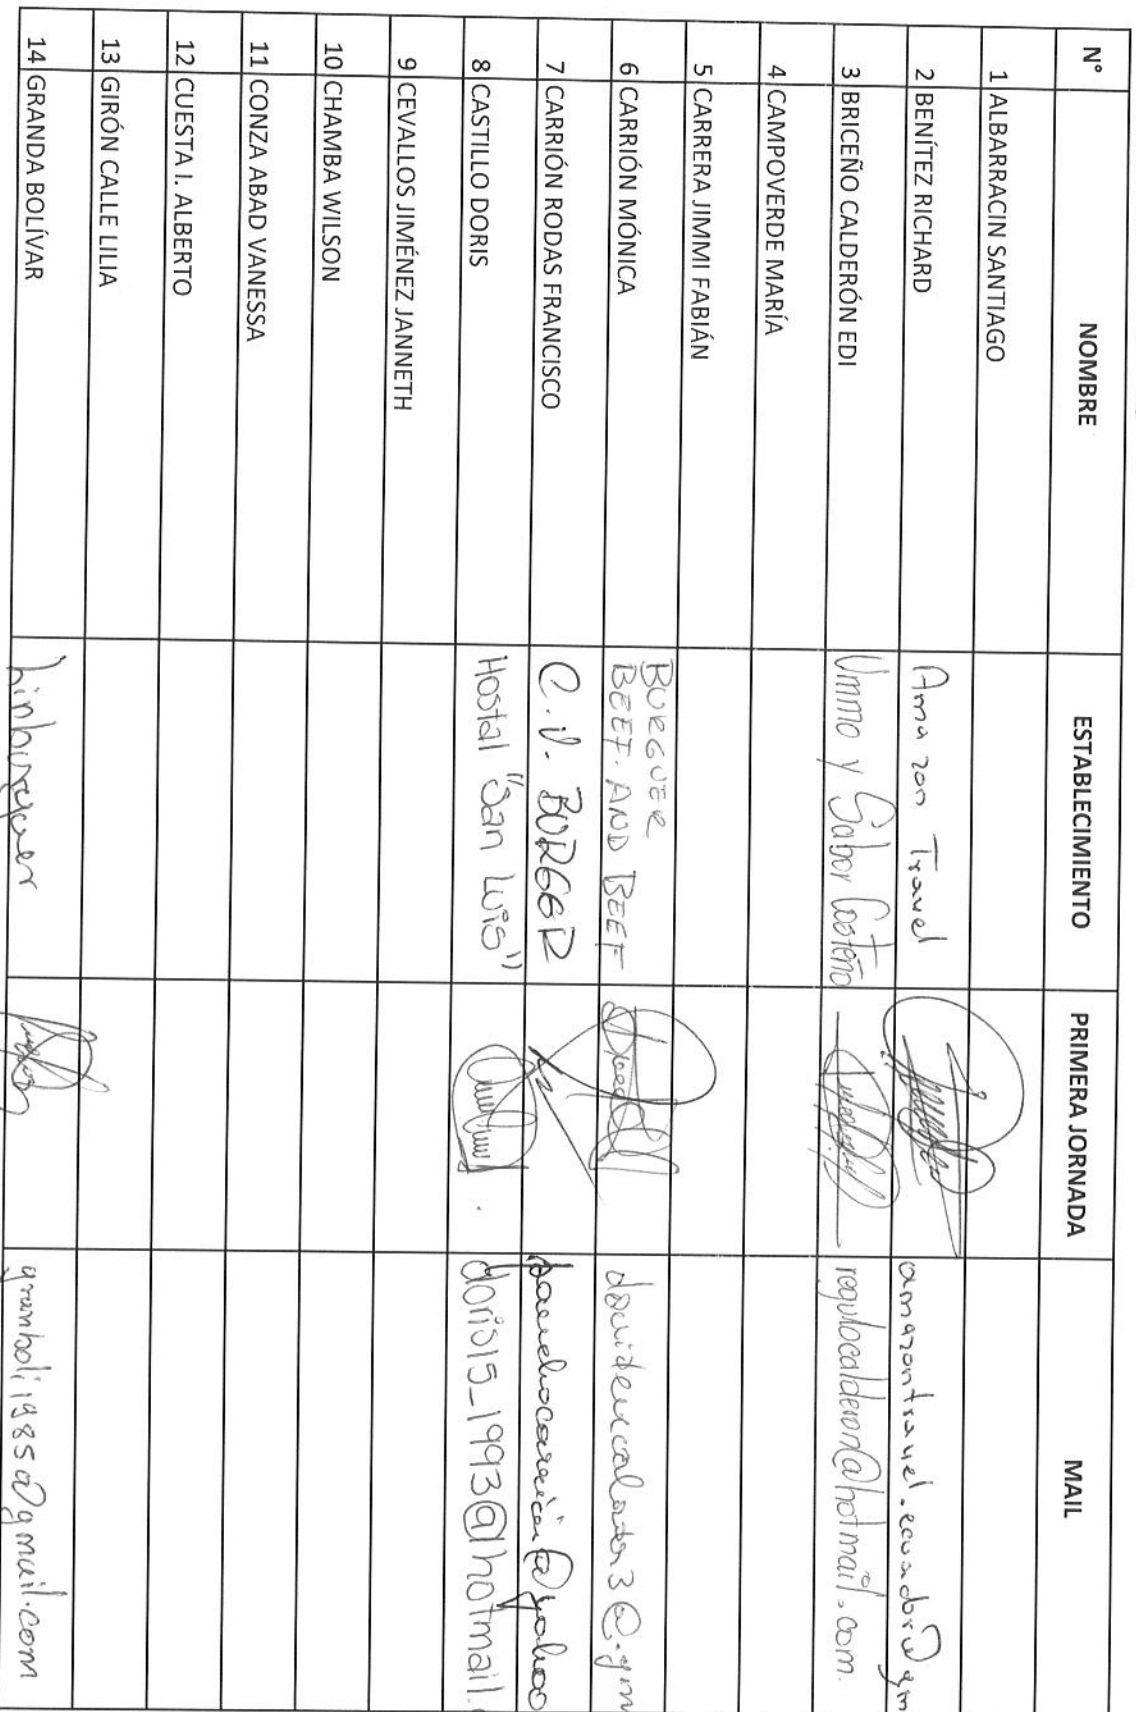 N° NOMBRE ESTABLECIMIENTO PRIMERA JORNADA MAIL
1 ALBARRACIN SANTIAGO
2 BENÍTEZ RICHARD Amazon Travel amazontravel.ecuador@gm
3 BRICEÑO CALDERÓN EDI Ummo y Sabor Costeño regulocalderon@hotmail.com.
4 CAMPOVERDE MARÍA
5 CARRERA JIMMI FABIÁN
6 CARRIÓN MÓNICA BURGUER
BEEF AND BEEF
7 CARRIÓN RODAS FRANCISCO C.V. BURGER
8 CASTILLO DORIS Hostal "San Luis" doris15_1993@hotmail.
9 CEVALLOS JIMÉNEZ JANNETH
10 CHAMBA WILSON
11 CONZA ABAD VANESSA
12 CUESTA I. ALBERTO
13 GIRÓN CALLE LILIA
14 GRANDA BOLÍVAR gramboli1985@gmail.com